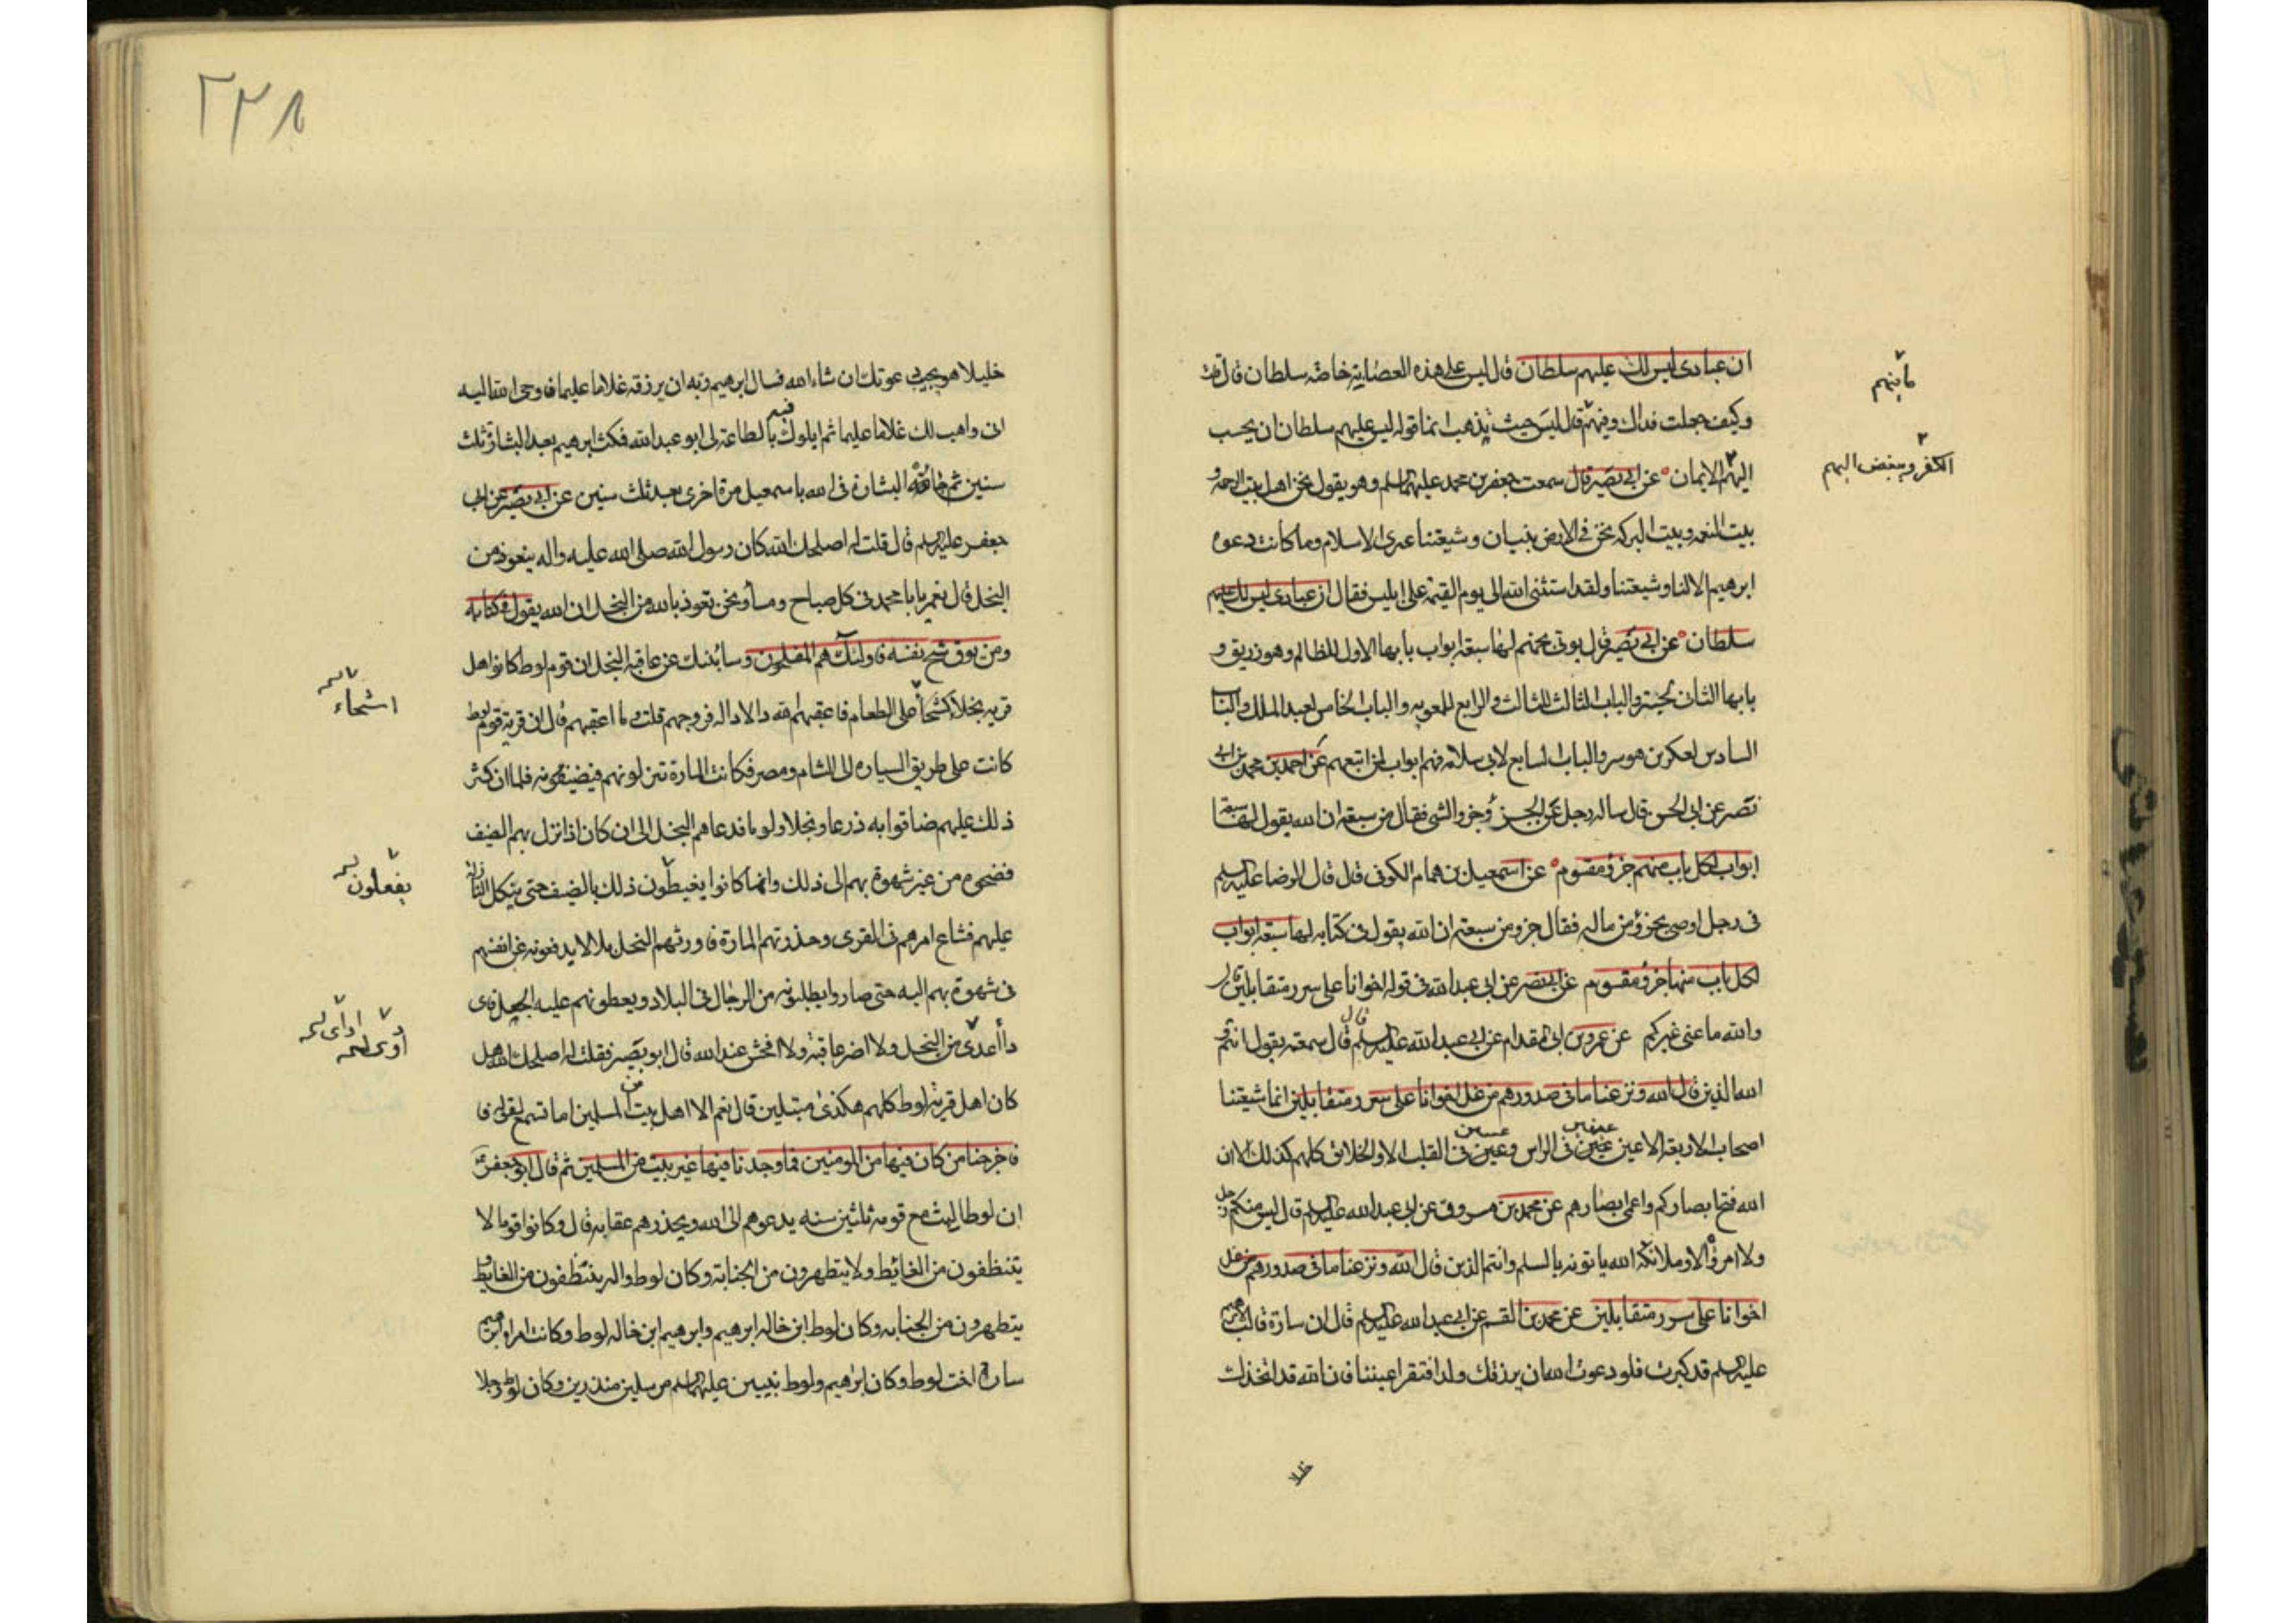 ان عبادى ليس لك عليهم سلطان قال ليس على هذه العصابة خاصة سلطان قال قلت
وكيف جعلت فداك وفيهم قال ليس حيث يذهب انما قوله ليس عليهم سلطان ان يحبب
اليهم الايمان عن ابى بصير قال سمعت جعفر بن محمد عليهما السلم وهو يقول نحن اهل بيت الرحمة و
بيت النعمه وبيت البركه نحن فى الارض بنيان وشيعتنا عرى الاسلام وما كانت دعوه
ابرهيم الا لنا وشيعتنا ولقد استثنى الله الى يوم القيمة على ابليس فقال ان عبادى ليس لك عليهم
سلطان عن ابى بصير قال يوتى بجهنم لها سبعة ابواب بابها الاول للظالم وهو زريق و
بابها الثانى لحبتر والباب الثالث للثالث والرابع لمعويه والباب الخامس لعبد الملك والباب
السادس لعكر بن هوسر والباب السابع لابى سلامه فهم ابواب لمن اتبعهم عن احمد بن محمد بن ابى
نصر عن ابى الحسن قال ساله رجل عن الجزء وجزء الشى فقال من سبعة ان الله يقول لها سبعة
ابواب لكل باب منهم جزؤ مقسوم عن اسمعيل بن همام الكوفى قال قال الرضا عليه السلم
فى رجل اوصى بجزؤ من ماله فقال جزو من سبعة ان الله يقول فى كتابه لها سبعة ابواب
لكل باب منها جزؤ مقسوم عن ابى بصير عن ابى عبد الله فى قوله اخوانا على سرر متقابلين قال
والله ما عنى غيركم عن عمرو بن ابى مقدام عن ابى عبد الله عليه السلم قال سمعته يقول انتم
الله الذين قال الله ونزعنا ما فى صدورهم من غل اخوانا على سرر متقابلين انما شيعتنا
اصحاب الاربعة الاعين عينين فى الراس وعين فى القلب الا والخلائق كلهم كذلك الا ان
الله فتح ابصاركم واعمى ابصارهم عن محمد بن مروان عن ابى عبد الله عليه السلم قال ليس منكم رجل
ولا امراة الا وملائكة الله ياتونه بالسلم وانتم الذين قال الله ونزعنا ما فى صدورهم من غل
اخوانا على سرر متقابلين عن محمد بن القسم عن ابى عبد الله عليه السلم قال ان سارة قالت لابرهيم
عليه السلم قد كبرت فلو دعوت الله ان يرزقك ولدا فتقر اعيننا فان الله قد اتخذك
مابينهم
الكفر ويبغض اليهم
خليلا
٢٣٨
خليلا هو يجيب دعوتك ان شاء الله فسال ابرهيم ربه ان يرزقه غلاما عليما فاوحى الله اليه
انى واهب لك غلاما عليما ثم ابلوك فيه بالطاعة لى ابو عبد الله فمكث ابرهيم بعد البشارة ثلث
سنين ثم جائته البشارة فى الله باسمعيل مرة اخرى بعد ثلث سنين عن ابى بصير عن ابى
جعفر عليه السلم قال قلت له اصلحك الله كان رسول الله صلى الله عليه واله يتعوذ من
البخل قال نعم يا با محمد فى كل صباح ومسأ ونحن نعوذ بالله من البخل ان الله يقول فى كتابه
ومن يوق شح نفسه فاولئك هم المفلحون وسانبئك عن عاقبة البخل ان قوم لوط كانوا اهل
قريه بخلا اشحأ على الطعام فاعقبهم الله دالا دا له فى فروجهم قلت وما اعقبهم قال ان قرية قوم لوط
كانت على طريق السياره الى الشام ومصر فكانت المارة تنزلونهم فيضيفونه فلما ان كثر
ذلك عليهم ضاقوا به ذرعا وبخلا ولوما فدعاهم البخل الى ان كان اذا نزل بهم الضيف
فضحوه من غير شهوة بهم الى ذلك وانما كانوا يغبطون ذلك بالضيف حتى ينكل النازلة
عليهم فشاع امرهم فى القرى وحذرتهم المارة فاورثهم البخل بلا لا يدفعونه عن انفسهم
فى شهوة بهم اليه حتى صاروا يطلبونه من الرجال فى البلاد ويعطونهم عليه الجعل فاى
دأ اعدى من البخل ولا اضر عاقبة ولا افحش عند الله قال ابو بصير فقلت له اصلحك الله هل
كان اهل قرية لوط كلهم هكذى مبتلين قال نعم الا اهل بيت من المسلمين اما تسمع لقوله فا
فاخرجنا من كان فيها من المومنين فما وجدنا فيها غير بيت من المسلمين ثم قال ابو جعفر
ان لوطا لبث مع قومه ثلثين سنه يدعوهم الى الله ويحذرهم عقابه قال وكانوا قوما لا
يتنظفون من الغائط ولا يتطهرون من الجنابة وكان لوط واله يتنظفون من الغايط و
يتطهرون من الجنابه وكان لوط ابن خاله ابرهيم وابرهيم ابن خاله لوط وكانت امراه ابرهيم
ساره اخت لوط وكان ابرهيم ولوط نبيين عليهما السلم مرسلين منذرين وكان لوط رجلا
اشحاء
يفعلون